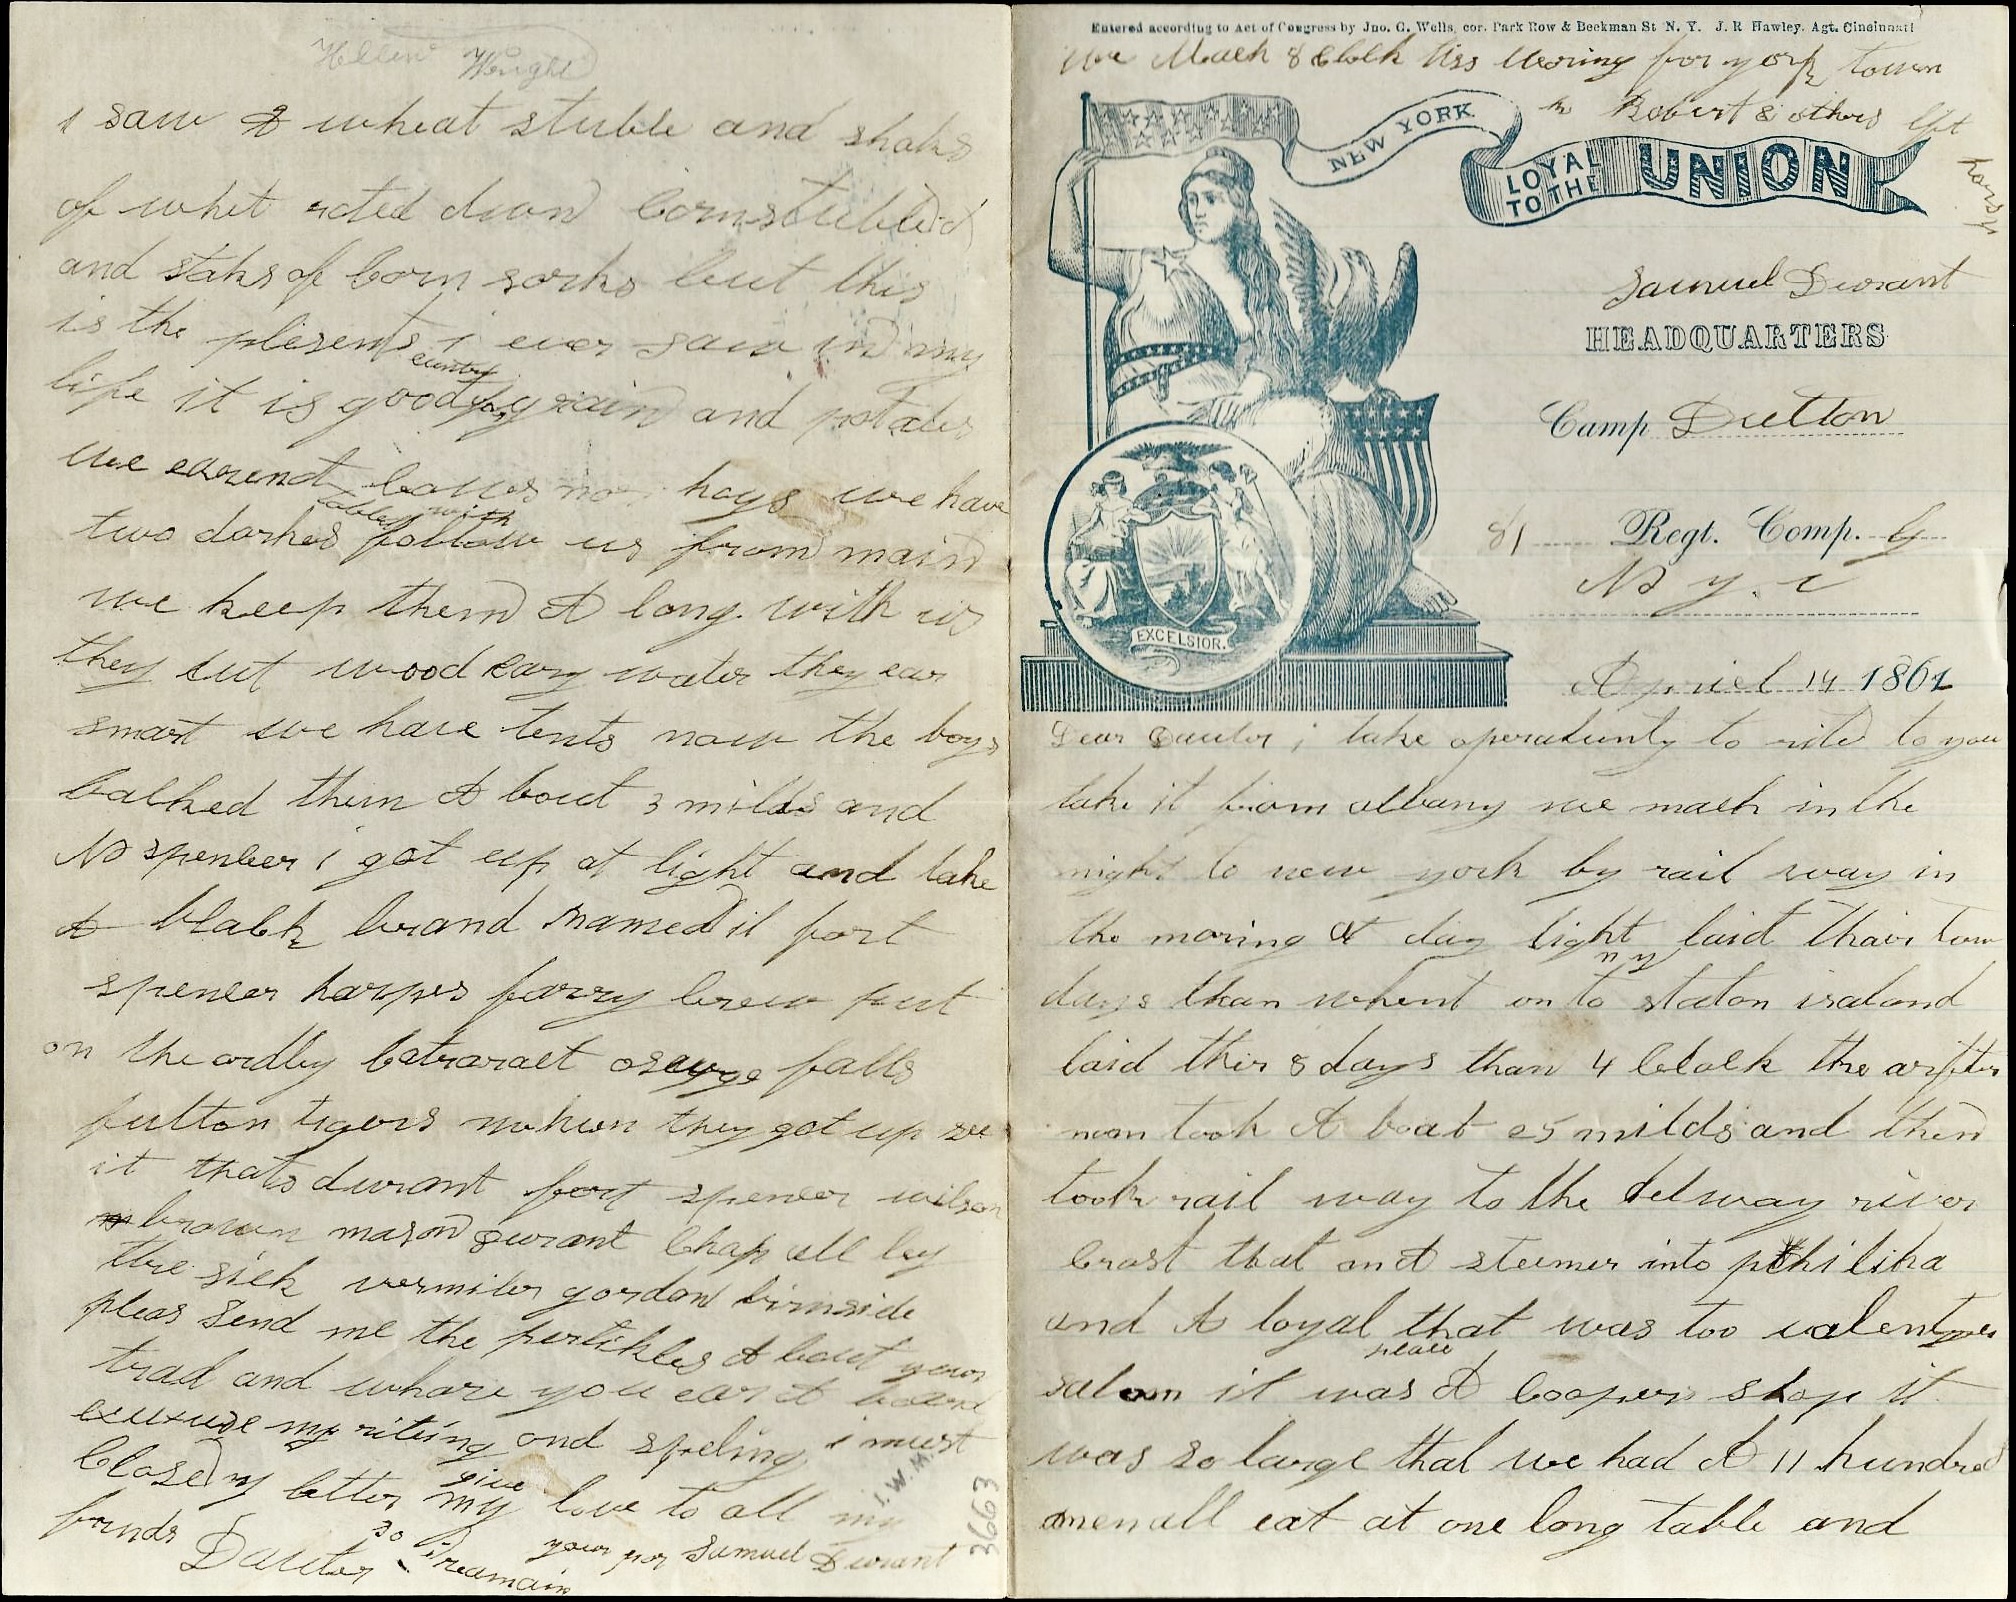 Entered according to Act of Congress by Jno. G. Wells, cor. Park Row & Beekman St N. Y. J. R Hawley, Agt. Cincinnati
we Mach 8 Clolk this Moring for york town
Robert & others lft
horsp
NEW YORK
LOYAL TO THE UNION
Samuel Durant
HEADQUARTERS
Camp Dutton
81 Regt. Comp. G
N y. v
EXCELSIOR.
Apriel 14 1862
Dear Dauter i take operatunty to rite to you
take it from albany we mach in the
night to new york by rail way in
the moring at day light laid thair tow
n y
days than whent on to staton iraland
laid thir 8 days than 4 Clolk the arfter
noon took A boat 25 milds and then
took rail way to the delway river
Crost that on A steemer into philiha
and A loyal that was too valentyers
place
saloon it was A Cooper shop it
was so large that we had A 11 hundred
men all eat at one long table and
Hellen Wright
i saw A wheat stuble and shaks
of whet roted down Cornstubled
and staks of Corn sorks but this
is the plesents i ever saw in my
cuntry
life it is good for grain and potates
we earend Cowes no hogs we have
tables with
two darkes follow us from main
we keep them A long with us
they cut wood Cary water they ear
smart we have tents now the boys
Calked them A bout 3 milds and
N spencer i got up at light and take
A black brand named it fort
spencer harpes farry Crew put
on the ordley Catraract osewgo falls
fulton tigers when they got up see
it thats durant fort spencer wilson
brown mason durant Chap all by
the sick vermiler gordon birnside
pleas send me the pertikles A bout your
trad and whare you ear A board
excuse my riteing and speling i must
Close my letter give my love to all my
frinds Dauter so i reamain your por Samuel Durant
I.W.M.
3663